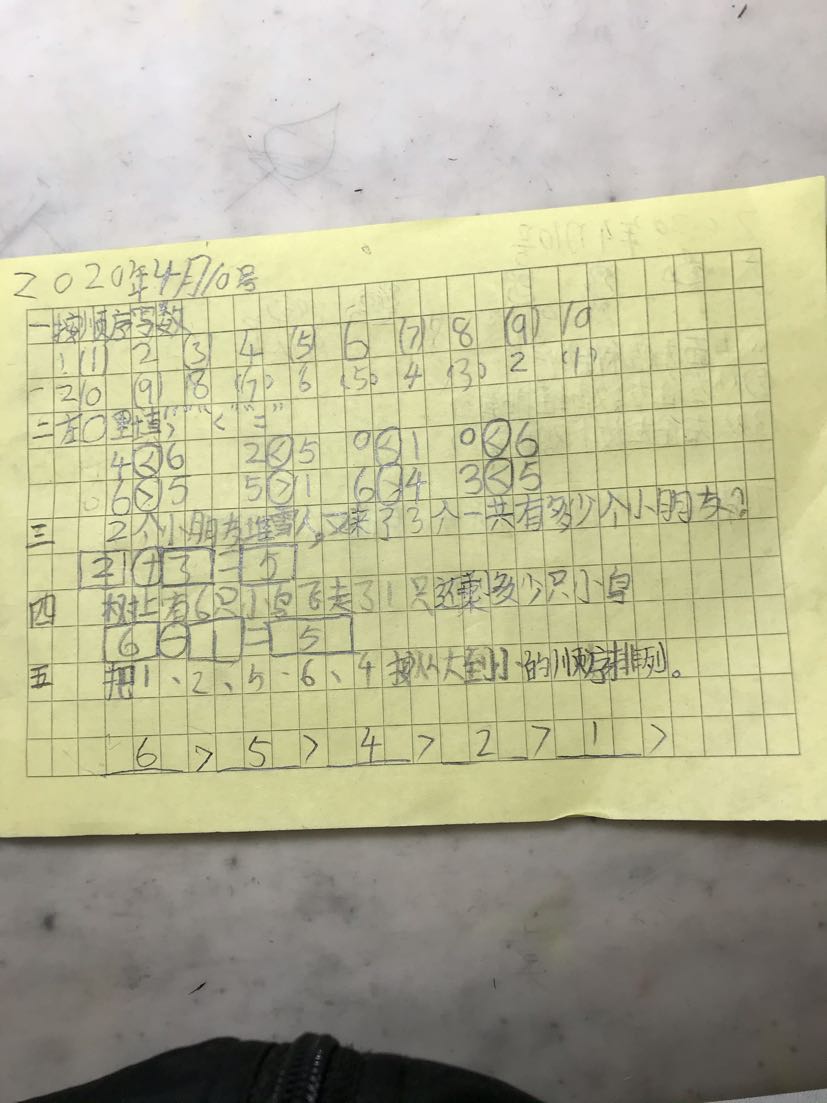 2020年4月10号
一按顺序写数
1.(1) 2 (3) 4 (5) 6 (7) 8 (9) 10
2 10 (9) 8 (7) 6 (5) 4 (3) 2 (1)
二在○里填">""<""="
4<6 2<5 0<1 0<6
6>5 5>1 6>4 3<5
三 2个小朋友堆雪人,又来了3个一共有多少个小朋友?
2+3=5
四 树上有6只小鸟飞走了1只还剩多少只小鸟
6-1=5
五 把1、2、5、6、4按从大到小的顺序排列。
6>5>4>2>1>